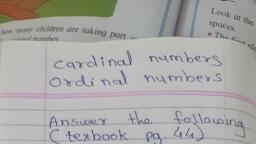 how many children are taking part in
number
Look at the
spaces.
The
cardinal numbers
Ordinal numbers
Answer the following
(texbook pg. 44)